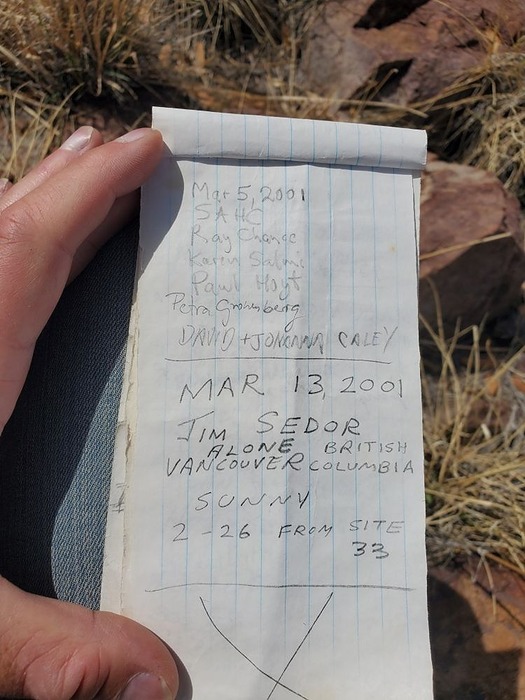 Mar 5, 2001
SAHC
Ray Change
Karen Salmi
Paul Hoyt
Petra
DAVID + JOHANNA CALEY
MAR 13, 2001
JIM SEDOR
ALONE BRITISH
VANCOUVER COLUMBIA
SUNNY
2-26 FROM SITE
33